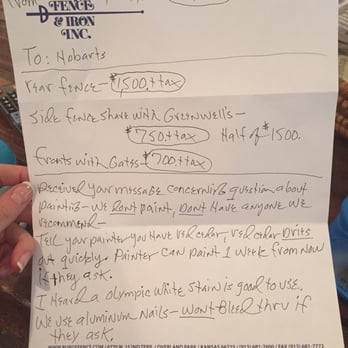 From
FENCE
& IRON
INC.
To: Hobarts
rear fence - $1500.+tax
Side fence share with Greenwell's -
$750.+tax Half of $1500.
fronts with Gates - $700.+tax
Received your message concerning question about
painting - we dont paint, Dont Have anyone we
recommend -
Tell your painter you Have red cedar, red cedar Dries
out quickly. Painter can paint 1 week from now
if they ask.
I Heard a olympic white stain is good to use.
We use aluminum nails - wont Bleed thru if
they ask.
OVERLAND PARK / KANSAS 66223 / (913) 681-